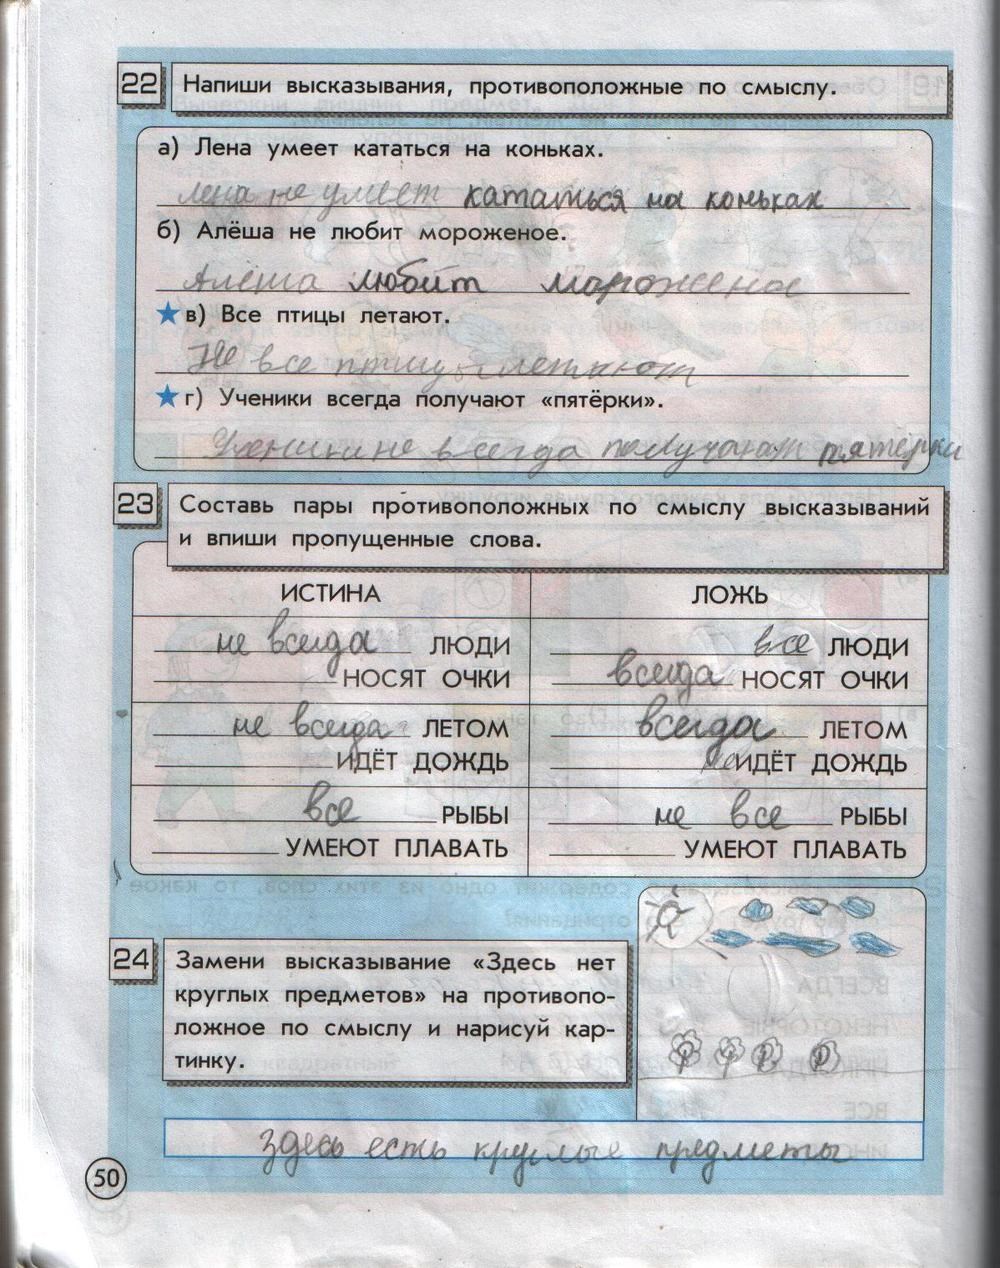 22 Напиши высказывания, противоположные по смыслу.
а) Лена умеет кататься на коньках.
лена не умеет кататься на коньках
б) Алёша не любит мороженое.
Алёша любит мороженое
в) Все птицы летают.
Не все птицы летают
г) Ученики всегда получают «пятёрки».
Ученики не всегда получают пятёрки
23 Составь пары противоположных по смыслу высказываний
и впиши пропущенные слова.
ИСТИНА
не всегда ЛЮДИ
НОСЯТ ОЧКИ
не всегда ЛЕТОМ
ИДЁТ ДОЖДЬ
все РЫБЫ
УМЕЮТ ПЛАВАТЬ
ЛОЖЬ
все ЛЮДИ
всегда НОСЯТ ОЧКИ
всегда ЛЕТОМ
ИДЁТ ДОЖДЬ
не все РЫБЫ
УМЕЮТ ПЛАВАТЬ
24 Замени высказывание «Здесь нет
круглых предметов» на противопо-
ложное по смыслу и нарисуй кар-
тинку.
Здесь есть круглые предметы
50